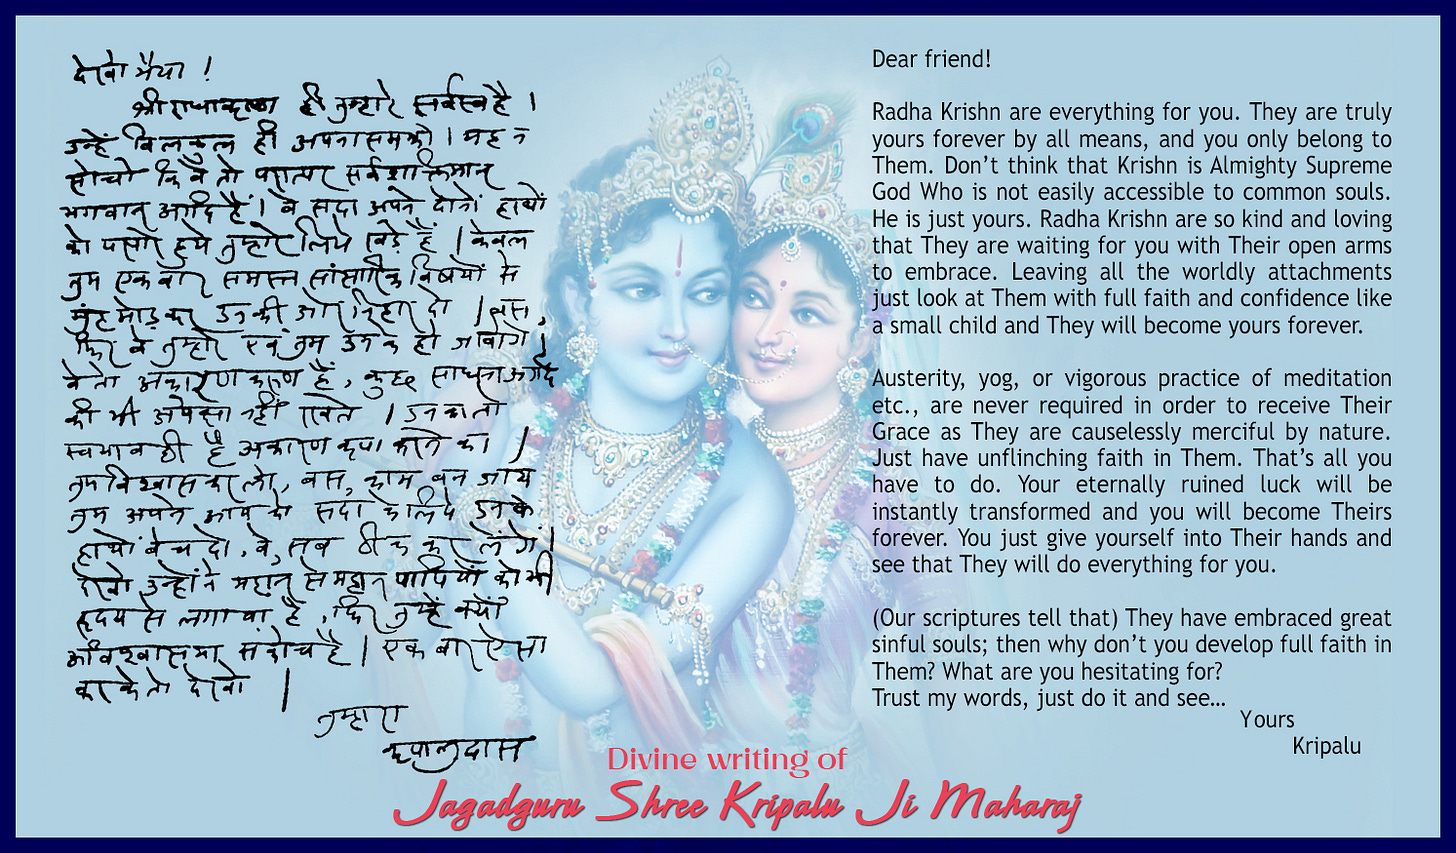 देखो भैया !
श्री राधाकृष्ण ही तुम्हारे सर्वस्व है ।
उन्हें बिलकुल ही अपना समझो । यह न
सोचो कि वे तो परात्पर सर्वशक्तिमान्
भगवान् आदि हैं । वे सदा अपने दोनों हाथों
को पसारे हुये तुम्हारे लिये खड़े हैं । केवल
तुम एक बार समस्त सांसारिक विषयों से
मुंह मोड़ कर उनकी ओर निहार दो । बस,
फिर वे तुम्हारे एवं तुम उनके हो जावोगे ।
वे तो अकारण करुण हैं, कुछ साधना आदि
की भी अपेक्षा नहीं रखते । उनका तो
स्वभाव ही है अकारण कृपा करने का ।
तुम विश्वास कर लो, बस, काम बन जाय
तुम अपने आप को सदा के लिये उनके
हाथों बेच दो, वे, सब ठीक कर लेंगे ।
देखो उन्होंने महान् से महान् पापियों को भी
हृदय से लगाया है, फिर तुम्हें क्यों
अविश्वास या संकोच है । एक बार ऐसा
कर के तो देखो ।
तुम्हारा
कृपालुदास
Dear friend!
Radha Krishn are everything for you. They are truly
yours forever by all means, and you only belong to
Them. Don’t think that Krishn is Almighty Supreme
God Who is not easily accessible to common souls.
He is just yours. Radha Krishn are so kind and loving
that They are waiting for you with Their open arms
to embrace. Leaving all the worldly attachments
just look at Them with full faith and confidence like
a small child and They will become yours forever.
Austerity, yog, or vigorous practice of meditation
etc., are never required in order to receive Their
Grace as They are causelessly merciful by nature.
Just have unflinching faith in Them. That’s all you
have to do. Your eternally ruined luck will be
instantly transformed and you will become Theirs
forever. You just give yourself into Their hands and
see that They will do everything for you.
(Our scriptures tell that) They have embraced great
sinful souls; then why don’t you develop full faith in
Them? What are you hesitating for?
Trust my words, just do it and see…
Yours
Kripalu
Divine writing of
Jagadguru Shree Kripalu Ji Maharaj